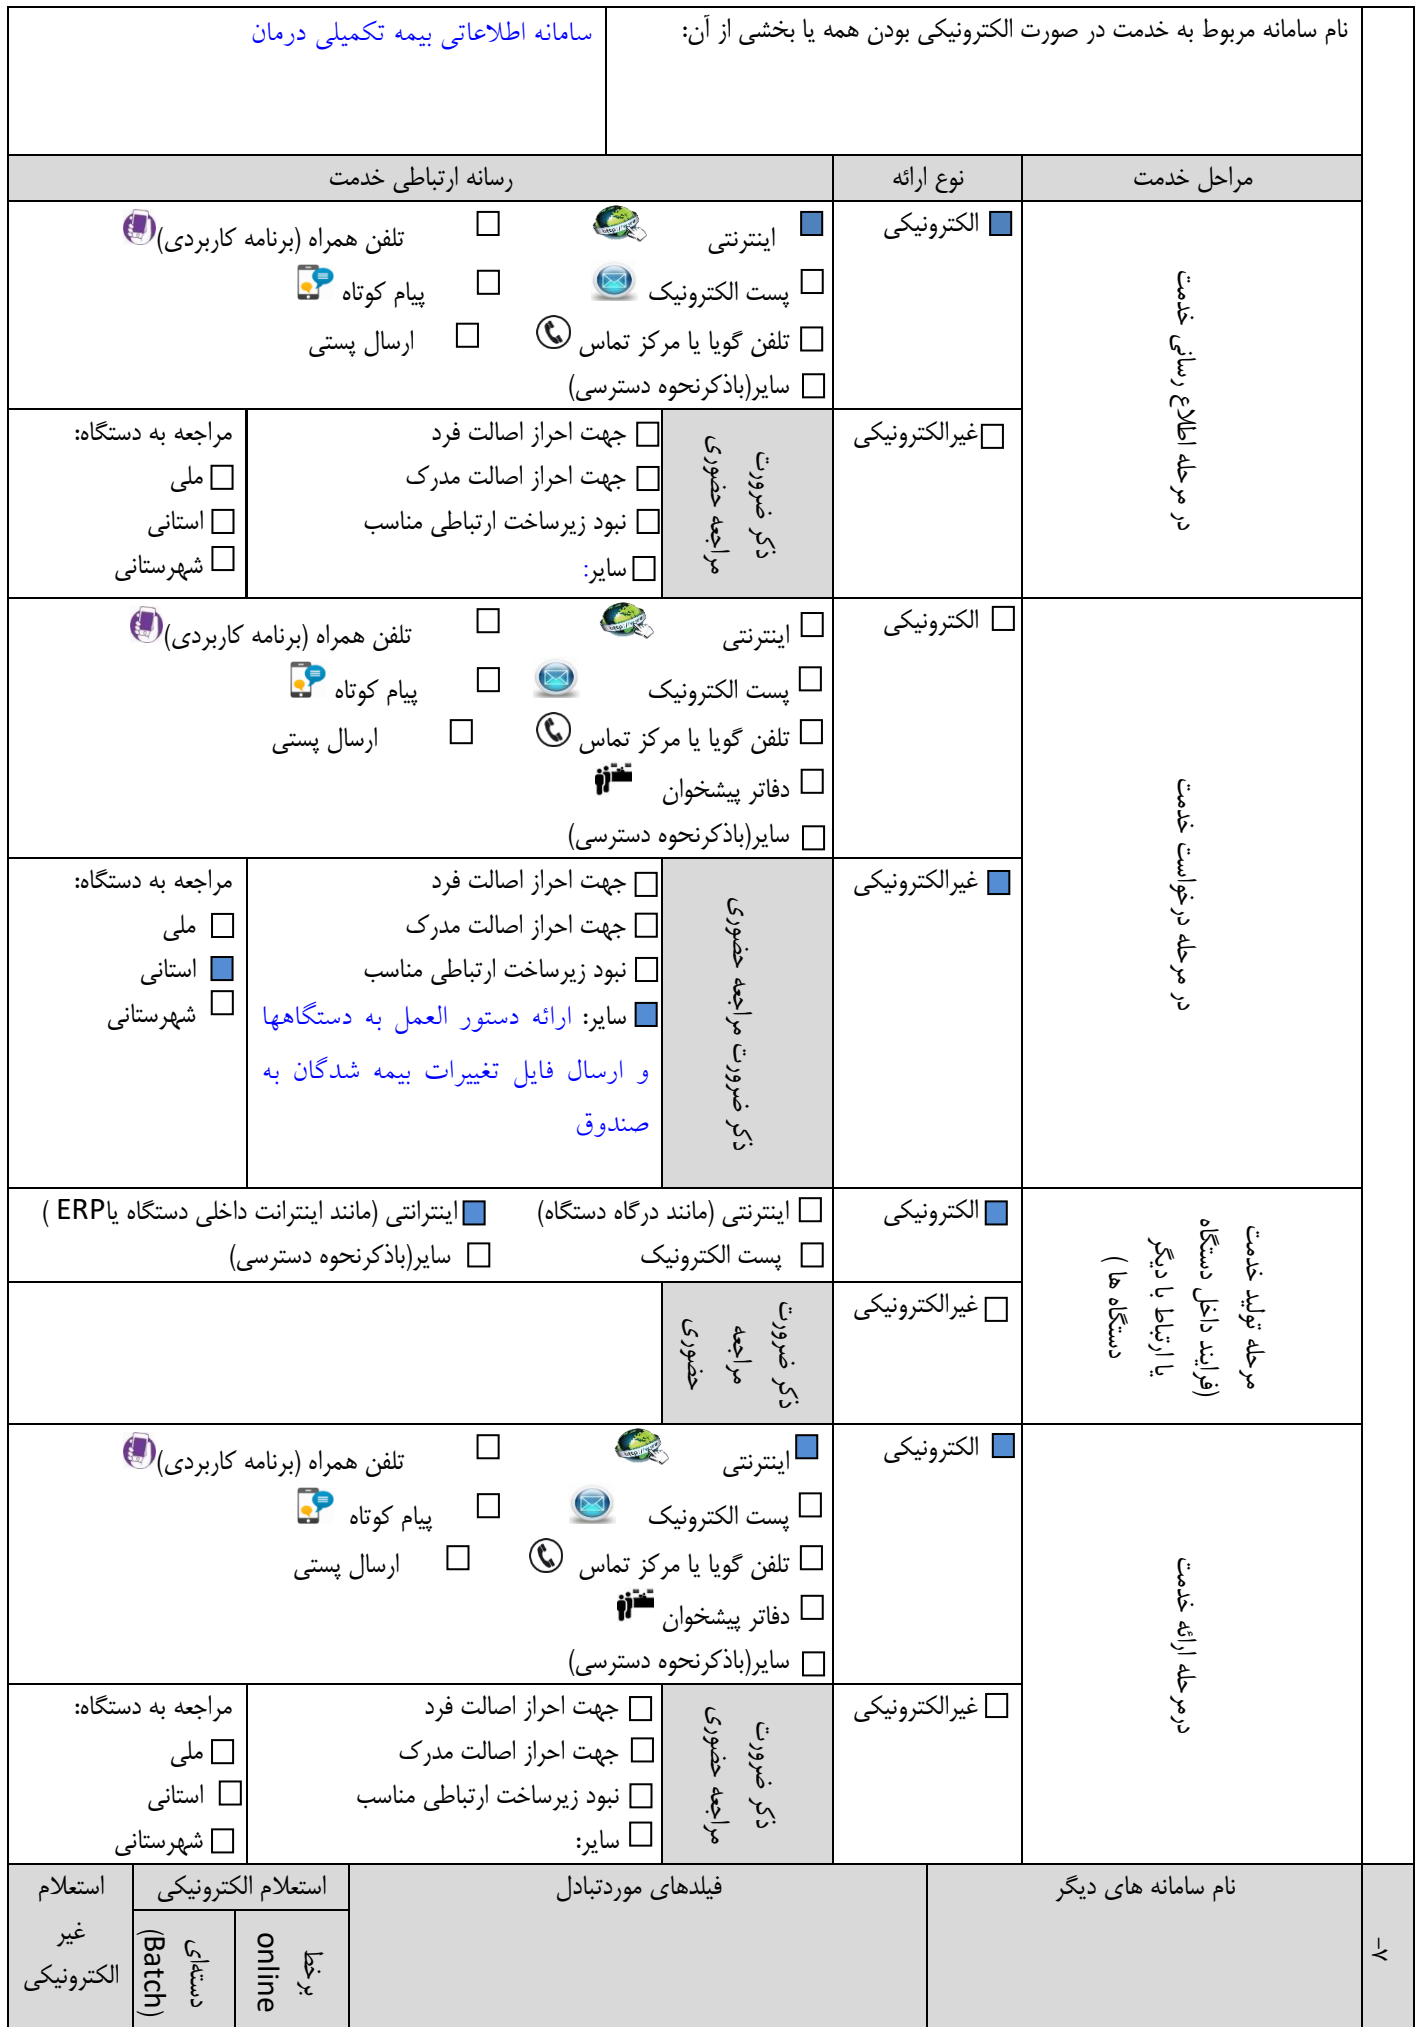 نام سامانه مربوط به خدمت در صورت الکترونیکی بودن همه یا بخشی از آن:
سامانه اطلاعاتی بیمه تکمیلی درمان
مراحل خدمت
نوع ارائه
رسانه ارتباطی خدمت
در مرحله اطلاع رسانی خدمت
الکترونیکی
اینترنتی
تلفن همراه (برنامه کاربردی)
پست الکترونیک
پیام کوتاه
تلفن گویا یا مرکز تماس
ارسال پستی
سایر(باذکرنحوه دسترسی)
غیرالکترونیکی
ذکر ضرورت
مراجعه حضوری
جهت احراز اصالت فرد
جهت احراز اصالت مدرک
نبود زیرساخت ارتباطی مناسب
سایر:
مراجعه به دستگاه:
ملی
استانی
شهرستانی
در مرحله درخواست خدمت
الکترونیکی
اینترنتی
تلفن همراه (برنامه کاربردی)
پست الکترونیک
پیام کوتاه
تلفن گویا یا مرکز تماس
ارسال پستی
دفاتر پیشخوان
سایر(باذکرنحوه دسترسی)
غیرالکترونیکی
ذکر ضرورت مراجعه حضوری
جهت احراز اصالت فرد
جهت احراز اصالت مدرک
نبود زیرساخت ارتباطی مناسب
سایر: ارائه دستور العمل به دستگاهها
و ارسال فایل تغییرات بیمه شدگان به
صندوق
مراجعه به دستگاه:
ملی
استانی
شهرستانی
مرحله تولید خدمت
(فرایند داخل دستگاه
یا ارتباط با دیگر
دستگاه ها )
الکترونیکی
اینترنتی (مانند درگاه دستگاه)
اینترانتی (مانند اینترانت داخلی دستگاه یاERP )
پست الکترونیک
سایر(باذکرنحوه دسترسی)
غیرالکترونیکی
ذکر ضرورت
مراجعه
حضوری
درمرحله ارائه خدمت
الکترونیکی
اینترنتی
تلفن همراه (برنامه کاربردی)
پست الکترونیک
پیام کوتاه
تلفن گویا یا مرکز تماس
ارسال پستی
دفاتر پیشخوان
سایر(باذکرنحوه دسترسی)
غیرالکترونیکی
ذکر ضرورت
مراجعه حضوری
جهت احراز اصالت فرد
جهت احراز اصالت مدرک
نبود زیرساخت ارتباطی مناسب
سایر:
مراجعه به دستگاه:
ملی
استانی
شهرستانی
۷-
نام سامانه های دیگر
فیلدهای موردتبادل
استعلام الکترونیکی
برخط
online
دسته‌ای
(Batch)
استعلام
غیر
الکترونیکی